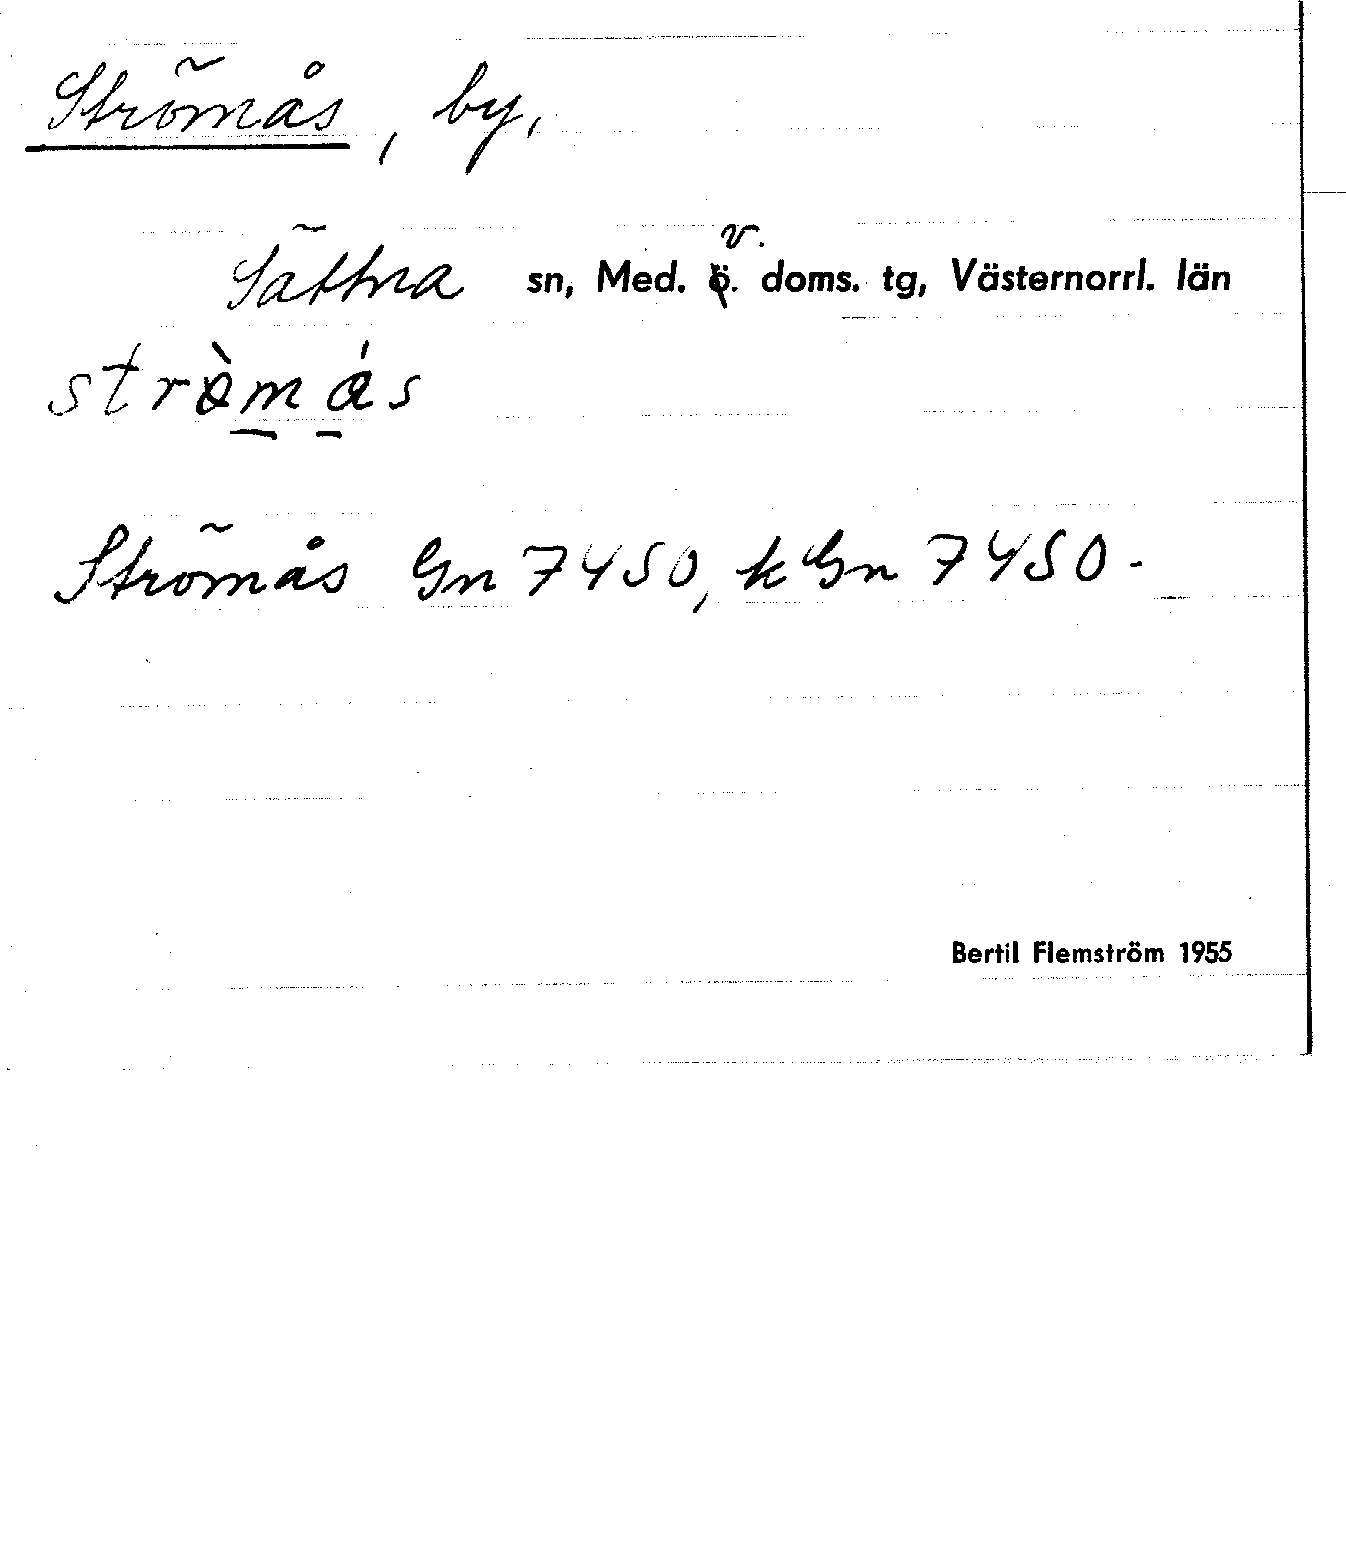 Strömås, by,
Sättna sn, Med. v. doms. tg, Västernorrl. län
Strömås Gn 7450, kGn 7450.
Bertil Flemström 1955